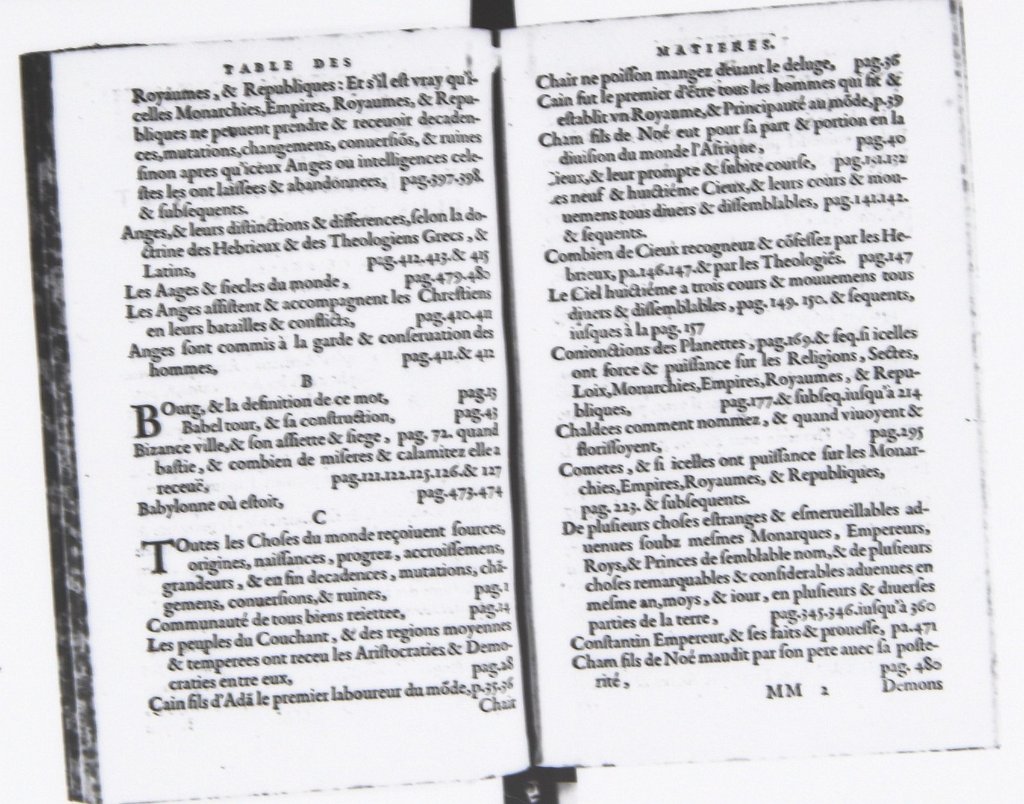 TABLE DES
Royaumes, & Republiques: Et s'il est vray qu'i-
celles Monarchies, Empires, Royaumes, & Repu-
bliques ne peuuent prendre & receuoir decaden-
ces, mutations, changemens, conuersiōs, & ruines
sinon apres qu'iceux Anges ou intelligences cele-
stes les ont laissees & abandonnees, pag.397.398.
& subsequents.
Anges, & leurs distinctions & differences, selon la do-
ctrine des Hebrieux & des Theologiens Grecs, &
Latins, pag.412.413.& 415
Les Aages & siecles du monde, pag.479.480
Les Anges assistent & accompagnent les Chrestiens
en leurs batailles & conflicts, pag.410.411
Anges sont commis à la garde & conseruation des
hommes, pag.411.& 412
B
BOurg, & la definition de ce mot, pag.23
Babel tour, & sa construction, pag.43
Bizance ville, & son assiette & siege, pag. 72. quand
bastie, & combien de miseres & calamitez elle a
receuë, pag.121.122.125.126.& 127
Babylonne où estoit, pag.473.474
C
TOutes les Choses du monde reçoiuent sources,
origines, naissances, progrez, accroissemens,
grandeurs, & en fin decadences, mutations, chā-
gemens, conuersions, & ruines, pag.2
Communauté de tous biens reiettee, pag.24
Les peuples du Couchant, & des regions moyennes
& temperees ont receu les Aristocraties & Demo-
craties entre eux, pag.28
Cain fils d'Adā le premier laboureur du mōde, p.35.36
Chair
MATIERES.
Chair ne poisson mangez deuant le deluge, pag.36
Cain fut le premier d'être tous les hommes qui fit &
establit vn Royaume, & Principauté au mōde, p.39
Cham fils de Noé eut pour sa part & portion en la
diuision du monde l'Afrique, pag.40
Cieux, & leur prompte & subite course, pag.131.132
Les neuf & huictiéme Cieux, & leurs cours & mou-
uemens tous diuers & dissemblables, pag.141.142.
& sequents.
Combien de Cieux recogneuz & cōfessez par les He-
brieux, pa.146.147.& par les Theologiēs. pag.147
Le Ciel huictiéme a trois cours & mouuemens tous
diuers & dissemblables, pag. 149. 150. & sequents,
iusques à la pag. 157
Conionctions des Planettes, pag.169.& seq.si icelles
ont force & puissance sur les Religions, Sectes,
Loix, Monarchies, Empires, Royaumes, & Repu-
bliques, pag.177.& subseq.iusqu'à 214
Chaldees comment nommez, & quand viuoyent &
florissoyent, pag.295
Cometes, & si icelles ont puissance sur les Monar-
chies, Empires, Royaumes, & Republiques,
pag. 223. & subsequents.
De plusieurs choses estranges & esmerueillables ad-
uenues soubz mesmes Monarques, Empereurs,
Roys, & Princes de semblable nom, & de plusieurs
choses remarquables & considerables aduenues en
mesme an, moys, & iour, en plusieurs & diuerses
parties de la terre, pag.345.346.iusqu'à 360
Constantin Empereur, & ses faits & prouesse, pa.471
Cham fils de Noé maudit par son pere auec sa poste-
rité, pag. 480
MM 2 Demons